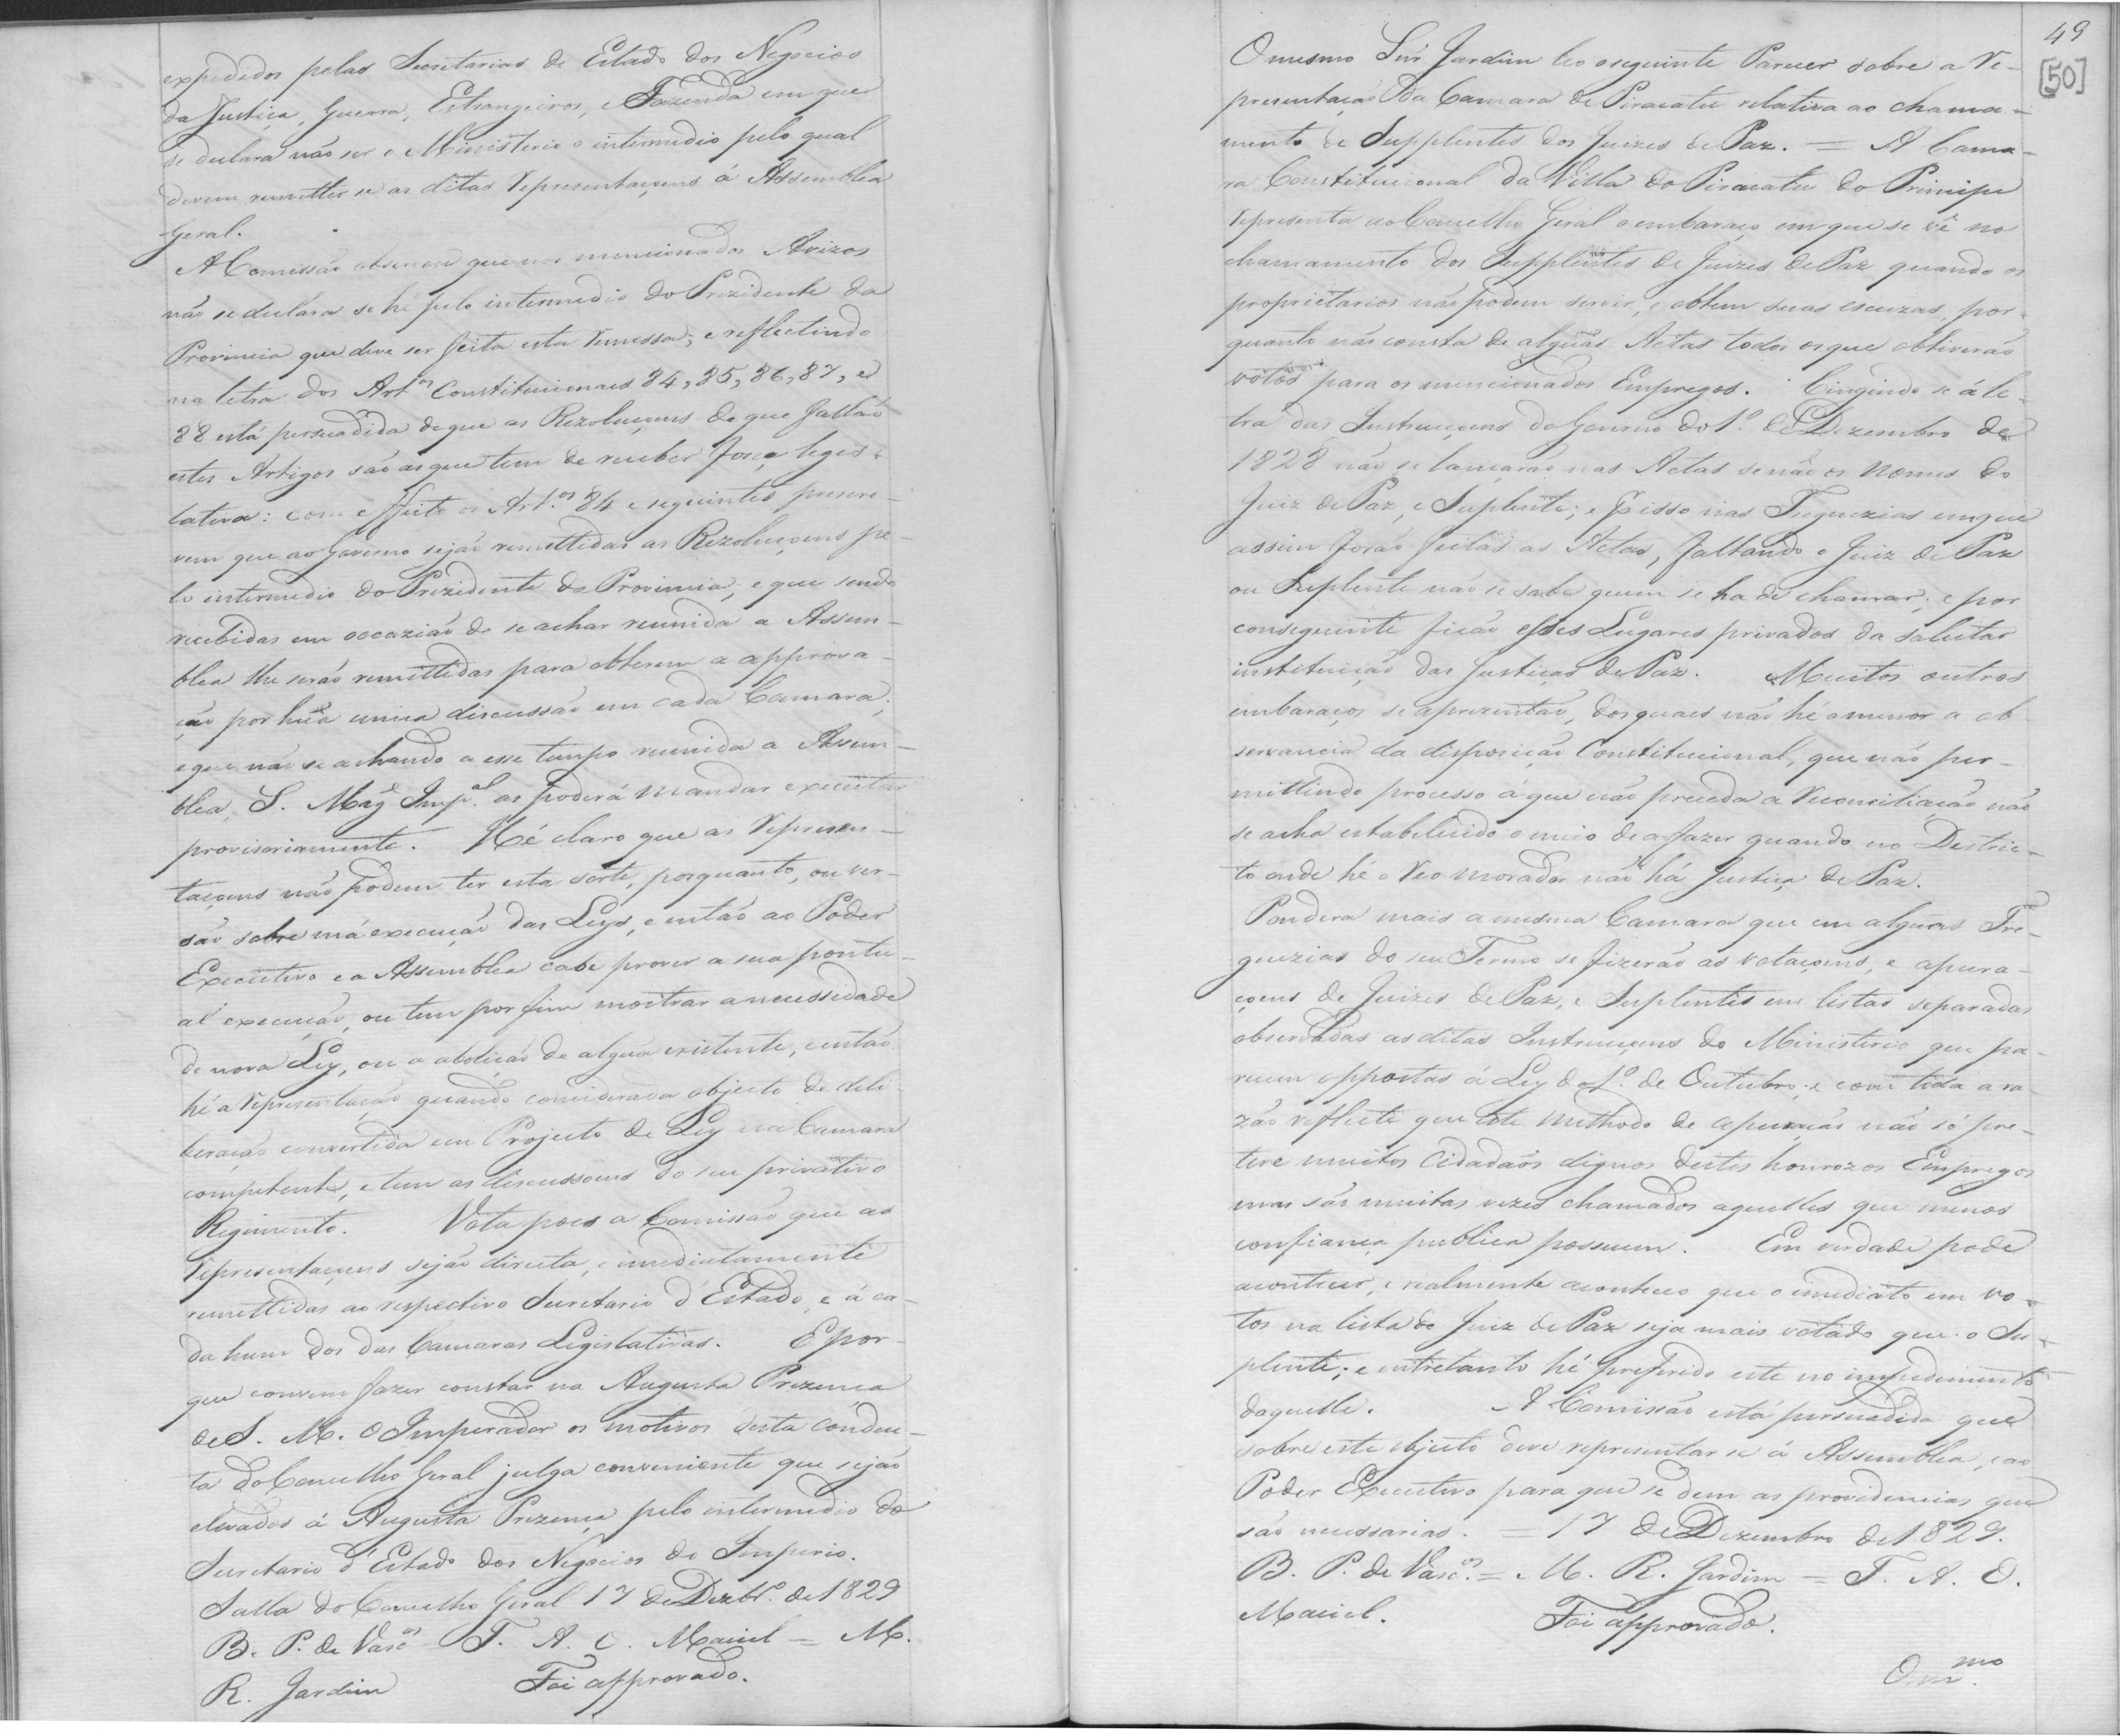 expedidos pelas Secretarias de Estado dos Negocios
da Justiça, Guerra, Estrangeiros, e Fazenda em que
se declara não ser o Ministerio o intermedio pelo qual
devem remetter se as ditas Representaçoens á Assemblea
Geral.
A Comissão observa que nos mencionados Avizos
não se declara se hé pelo intermedio do Prezidente da
Provincia que deve ser feita esta remessa; e reflectindo
na letra dos Art.os Constitucionaes 84, 85, 86, 87, e
88 está persuadida de que as Rezoluçoens de que fallão
estes Artigos são as que tem de receber força legis-
lativa: com effeito os Art.os 84 e seguintes prescre-
vem que ao Governo sejão remettidas as Rezoluçoens pe-
lo intermedio do Prezidente da Provincia; e que sendo
recebidas em occazião de se achar reunida a Assem-
blea lhe serão remettidas para obterem a approva-
ção por huã unica discussão em cada Camara;
e que não se achando a esse tempo reunida a Assem-
blea, S. Mag.e Imp.al as poderá mandar executar
provisoriamente. Hé claro que as Represen-
taçoens não podem ter esta sorte, porquanto, ou ver-
são sobre má execução das Leys, e então ao Poder
Executivo e a Assemblea cabe prover a sua pontu-
al execução, ou tem por fim mostrar a necessidade
de nova Ley, ou a abolição de algua existente, e então
hé a Representação quando considerada objecto de deli-
beração convertida em Projecto de Ley na Camara
competente, e tem as discussoens do seu privativo
Regimento. Vota pois a Comissão que as
Representaçoens sejão directa, e imediatamente
remettidas ao respectivo Secretario d'Estado, e á ca-
da hum dos das Camaras Legislativas. E por-
que convem fazer constar na Augusta Prezença
de S. M. O Imperador os motivos desta condu-
ta do Concelho Geral julga conveniente que sejão
elevados á Augusta Prezença pelo intermedio do
Secretario d'Estado dos Negocios do Imperio.
Salla do Concelho Geral 17 de Dezbr.o de 1829
B. P. de Vasc.os = T. A. O. Maciel = M.
R. Jardim Foi approvado.
49
[50]
O mesmo Snr Jardim leo o seguinte Parecer sobre a Re-
prezentação da Camara de Piracatu relativa ao chama-
mento de Supplentes dos Juizes de Paz. = A Cama-
ra Constitucional da Villa do Piracatu do Principe
representa ao Concelho Geral o embaraço em que se vê no
chamamento dos Supplentes de Juizes de Paz quando os
proprietarios não podem servir, e obtem suas escuzas, por-
quanto não consta de alguãs Actas todos os que obtiverão
votos para os mencionados Empregos. Cingindo se á le-
tra das Instrucçoens do Governo do 1.o de Dezembro de
1828 não se lançarão nas Actas senão os nomes do
Juiz de Paz, e Suplente; e p isso nas Freguezias em que
assim forão feitas as Actas, faltando o Juiz de Paz
ou Suplente não se sabe quem se ha de chamar; e por
conseguinte ficão esses Lugares privados da salutar
instituição das Justiças de Paz. Muitos outros
embaraços se aprezentão, dos quaes não hé o menor a ob
servancia da disposição Constitucional, que não per-
mittindo processo á que não preceda a Reconciliação não
se acha estabelecido o meio de a fazer quando no Destric-
to onde hé o Reo morador não há Justiça de Paz.
Pondera mais a mesma Camara que em alguãs Fre-
guezias do seu Termo se fizerão as votaçoens, e apura-
çoens de Juizes de Paz, e Suplentes em listas separadas
observadas as ditas Instrucçoens do Ministerio que pa-
recem oppostas á Ley do 1.o de Outubro; e com toda a ra-
zão reflecte que este methodo de apuração não só pre-
tere muitos Cidadãos dignos destes honrozos Empregos
mas são muitas vezes chamados aquelles que menos
confiança publica possuem. Em verdade pode
acontecer, e realmente aconteceo que o imediato em vo-
tos na lista do Juiz de Paz seja mais votado que o Su-
plente; e entretanto hé preferido este no impedimento
daquelle. A Comissão está persuadida que
sobre este objecto deve representar se á Assemblea, e ao
Poder Executivo para que se dem as providencias que
são necessarias. = 17 de Dezembro de 1829.
B. P. de Vasc.os = M. R. Jardim = T. A. O.
Maciel. Foi approvado.